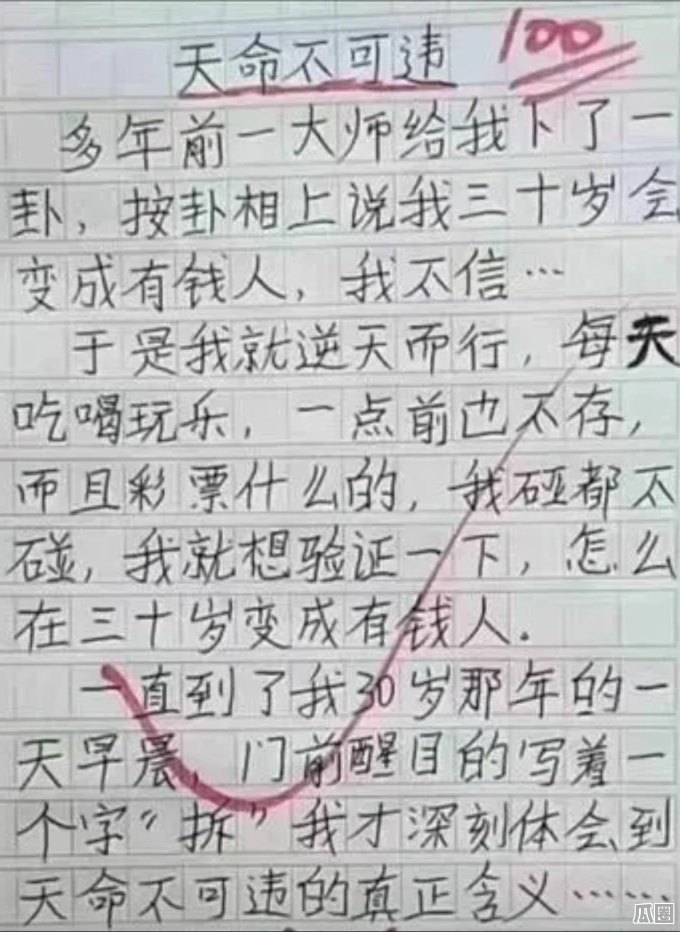 天命不可违 100
多年前一大师给我下了一
卦，按卦相上说我三十岁会
变成有钱人，我不信…
于是我就逆天而行，每天
吃喝玩乐，一点前也不存，
而且彩票什么的，我碰都不
碰，我就想验证一下，怎么
在三十岁变成有钱人.
一直到了我30岁那年的一
天早晨，门前醒目的写着一
个字“拆”我才深刻体会到
天命不可违的真正含义……
瓜圈